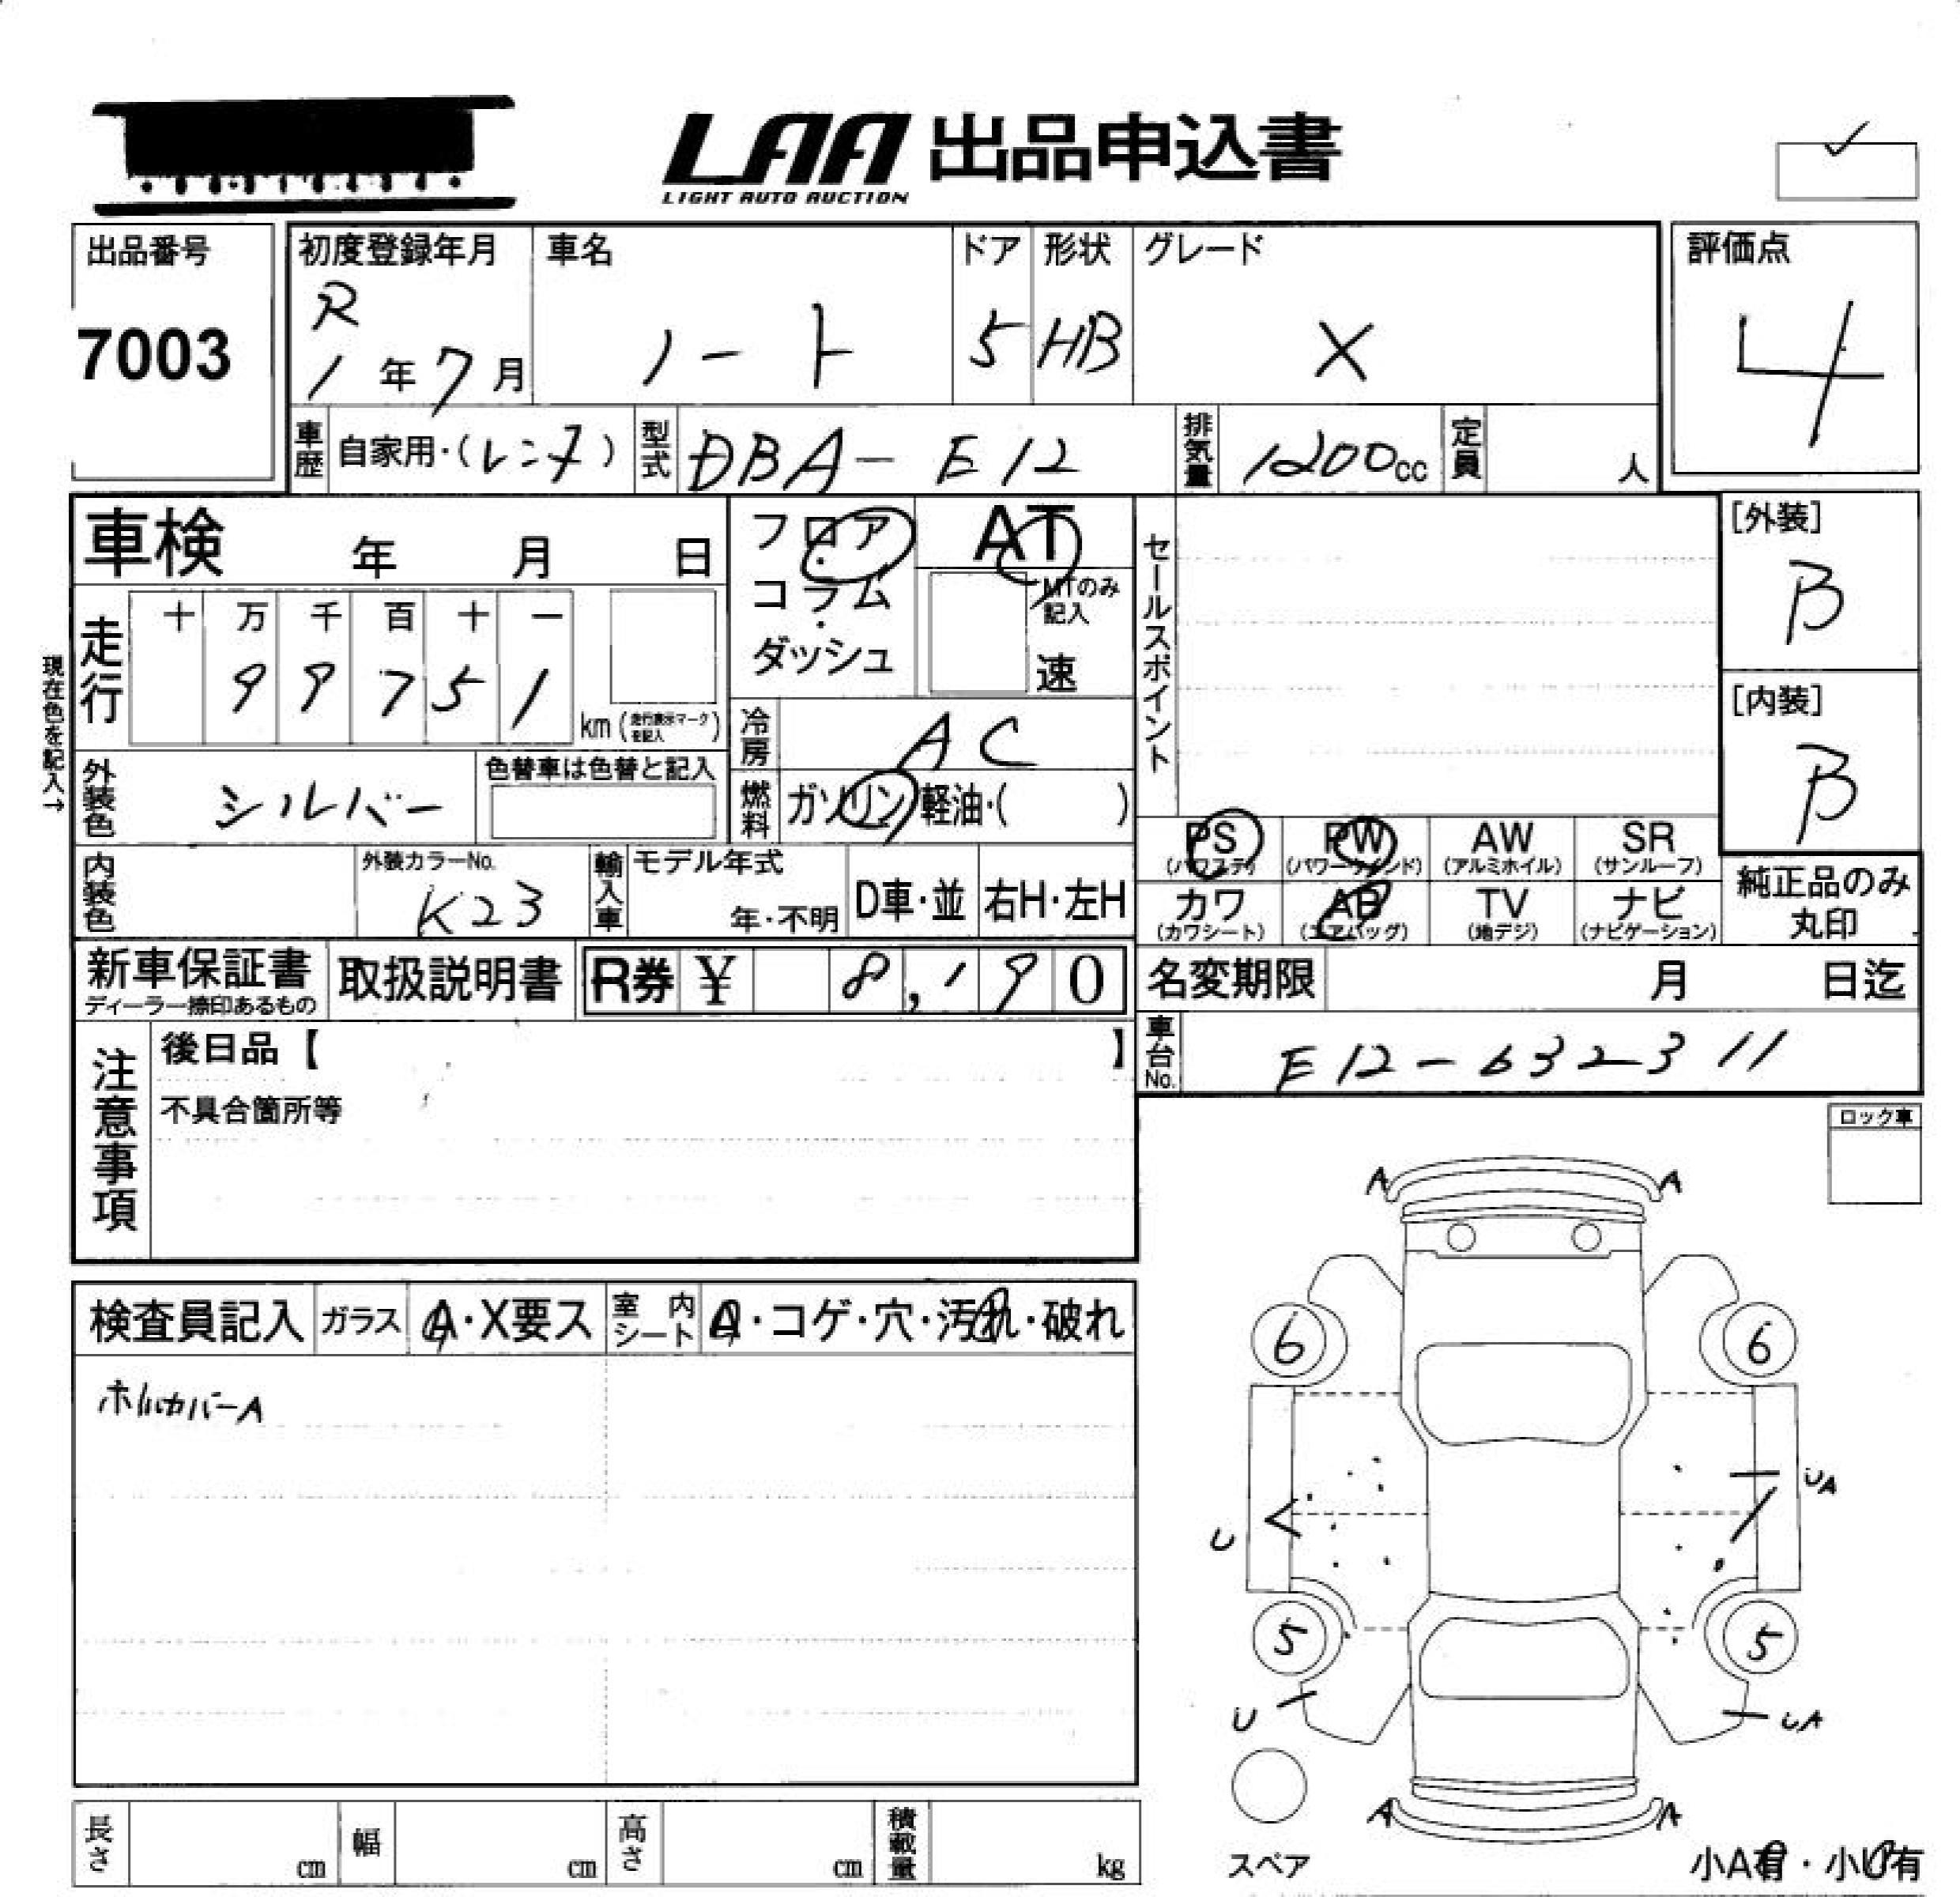 LAA 出品申込書
LIGHT AUTO AUCTION
出品番号
7003
初度登録年月
R
1年7月
車名
ノート
ドア
5
形状
HB
グレード
X
評価点
4
車歴 自家用・(レンタ)
型式 DBA-E12
排気量 1200cc
定員 人
車検 年 月 日
フロア
コラム
ダッシュ
AT
MTのみ
記入
速
セールスポイント
[外装]
B
[内装]
B
現在色を記入→
走行
十 万 千 百 十 一
9 9 7 5 1
km (走行表示マークを記入)
冷房 AC
燃料 ガソリン・軽油・( )
外装色 シルバー
色替車は色替と記入
内装色
外装カラーNo.
K23
輸入車
モデル年式
年・不明
D車・並
右H・左H
PS PW AW SR
(パワステ) (パワーウインド) (アルミホイル) (サンルーフ)
カワ AB TV ナビ
(カワシート) (エアバッグ) (地デジ) (ナビゲーション)
純正品のみ
丸印
新車保証書
ディーラー捺印あるもの
取扱説明書
R券 ¥ 8,190
名変期限 月 日迄
車台No. E12-632311
注意事項
後日品【 】
不具合箇所等
ロック車
検査員記入 ガラス A・X要ス 室内シート A・コゲ・穴・汚れ・破れ
ホイルカバーA
A A
6 6
UA
U
5 5
U UA
A A
スペア
小A有・小U有
長さ cm 幅 cm 高さ cm 積載量 kg